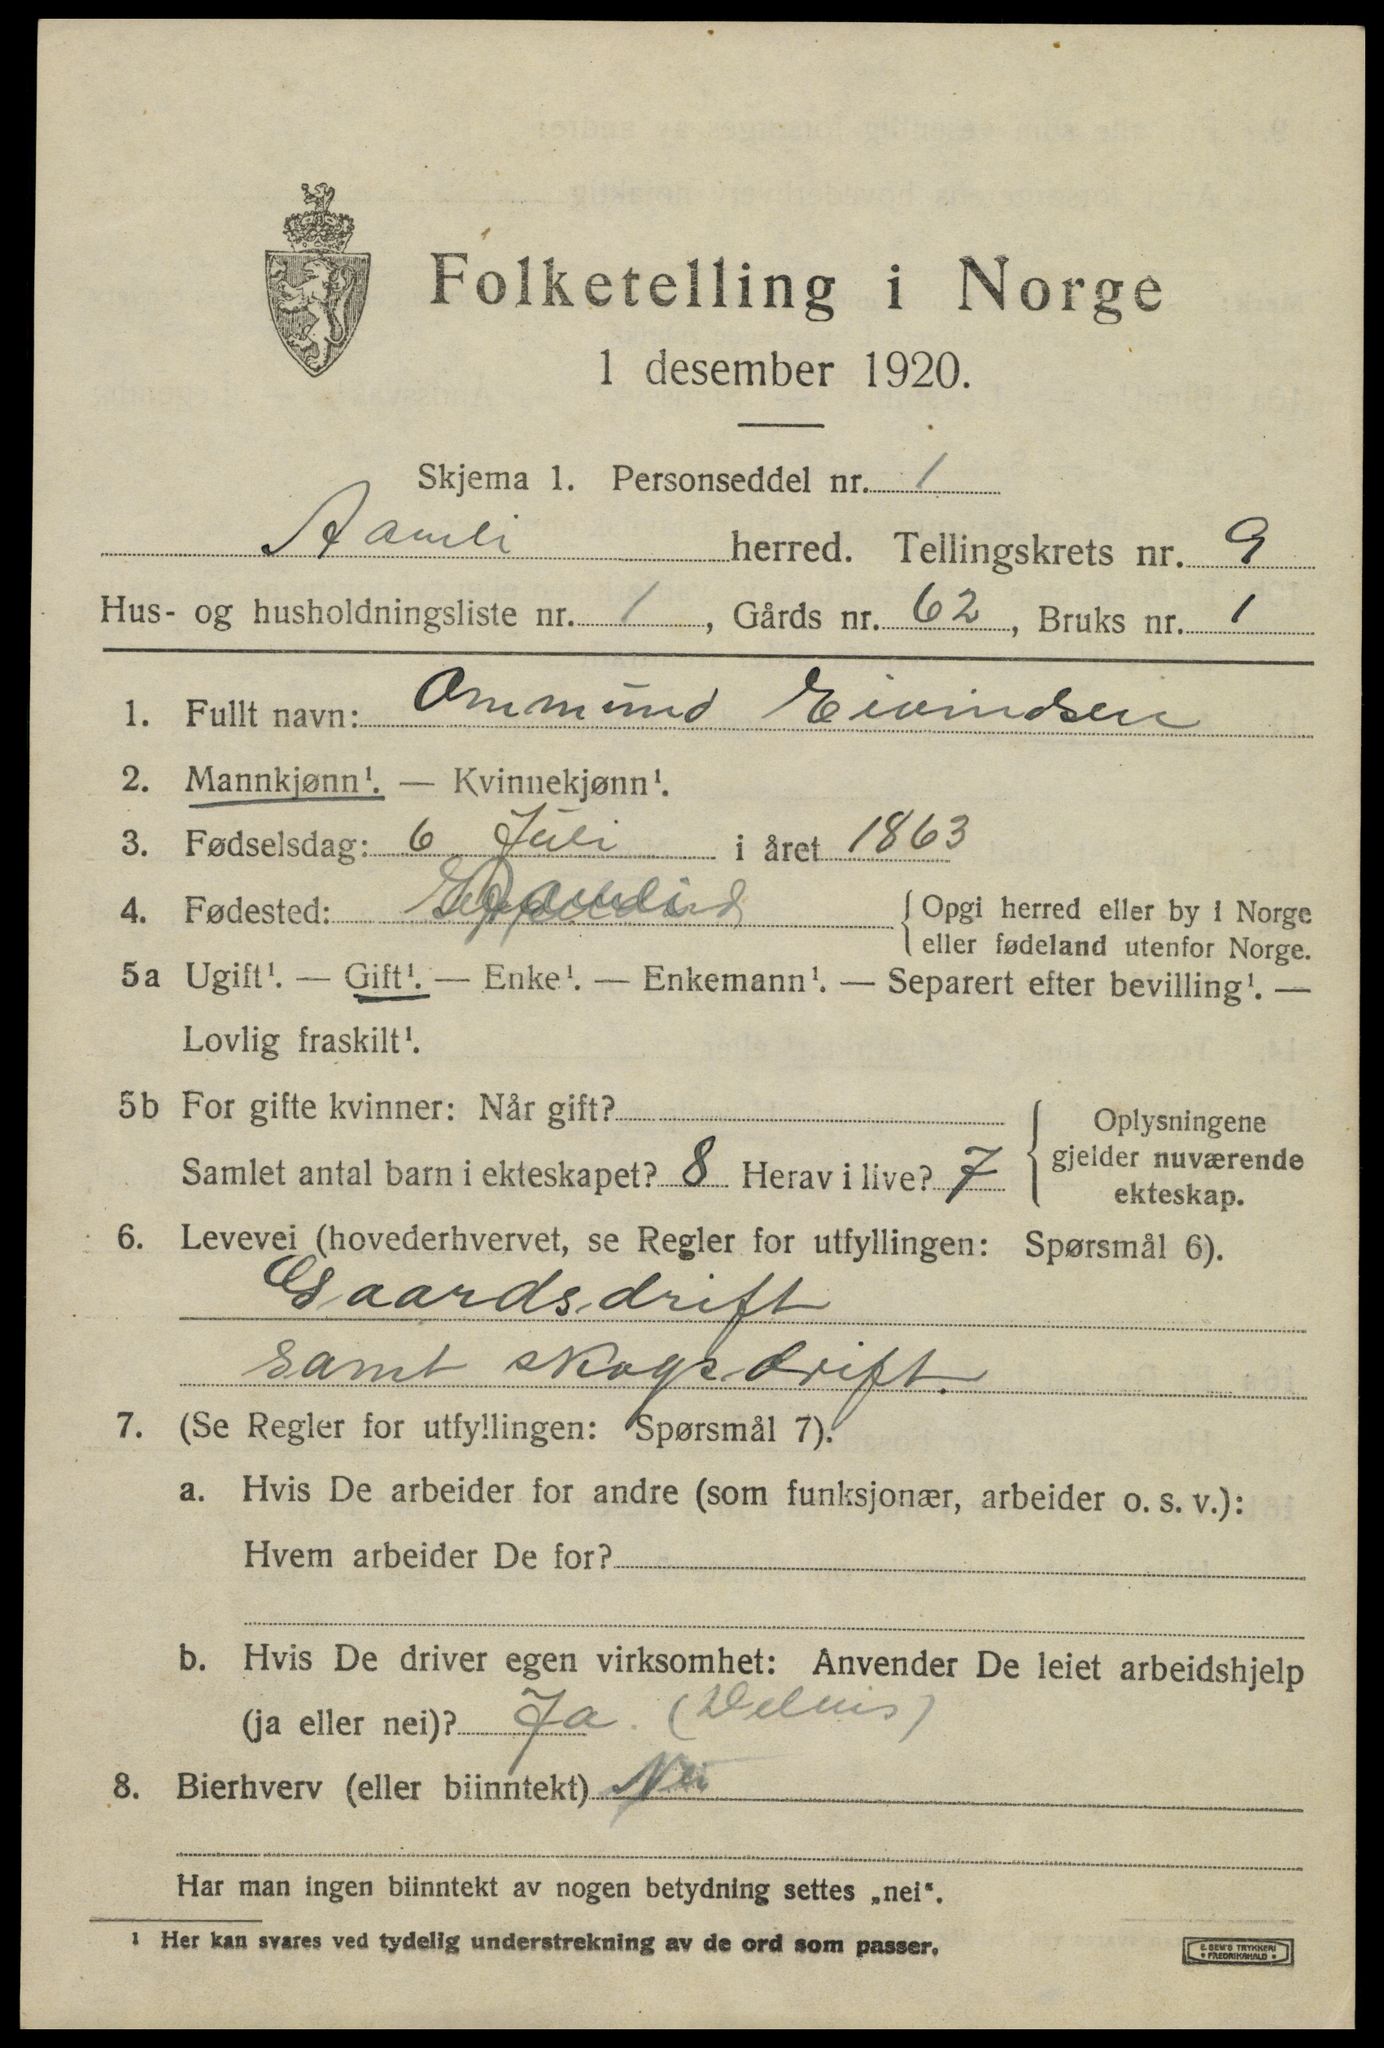 Folketelling i Norge
1 desember 1920.
Skjema 1. Personseddel nr. 1
Aamli herred. Tellingskrets nr. 9
Hus- og husholdningsliste nr. 1, Gårds nr. 62, Bruks nr. 1
1. Fullt navn: Ommund Eivindsen
2. Mannkjønn¹. — Kvinnekjønn¹.
3. Fødselsdag: 6 Juli i året 1863
4. Fødested: {Opgi herred eller by i Norge
eller fødeland utenfor Norge.
5a Ugift¹. — Gift¹. — Enke¹. — Enkemann¹. — Separert efter bevilling¹. —
Lovlig fraskilt¹.
5b For gifte kvinner: Når gift?
Samlet antal barn i ekteskapet? 8 Herav i live? 7
{Oplysningene
gjelder nuværende
ekteskap.
6. Levevei (hovederhvervet, se Regler for utfyllingen: Spørsmål 6).
Gaardsdrift
samt skogsdrift.
7. (Se Regler for utfyllingen: Spørsmål 7).
a. Hvis De arbeider for andre (som funksjonær, arbeider o. s. v.):
Hvem arbeider De for?
b. Hvis De driver egen virksomhet: Anvender De leiet arbeidshjelp
(ja eller nei)? Ja. (Delvis)
8. Bierhverv (eller biinntekt) Nei
Har man ingen biinntekt av nogen betydning settes „nei“.
¹ Her kan svares ved tydelig understrekning av de ord som passer.
E. SEM'S TRYKKERI
* FREDRIKSHALD *